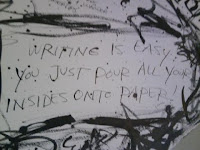 WRITING IS EASY
YOU JUST POUR ALL YOUR
INSIDES ONTO PAPER!